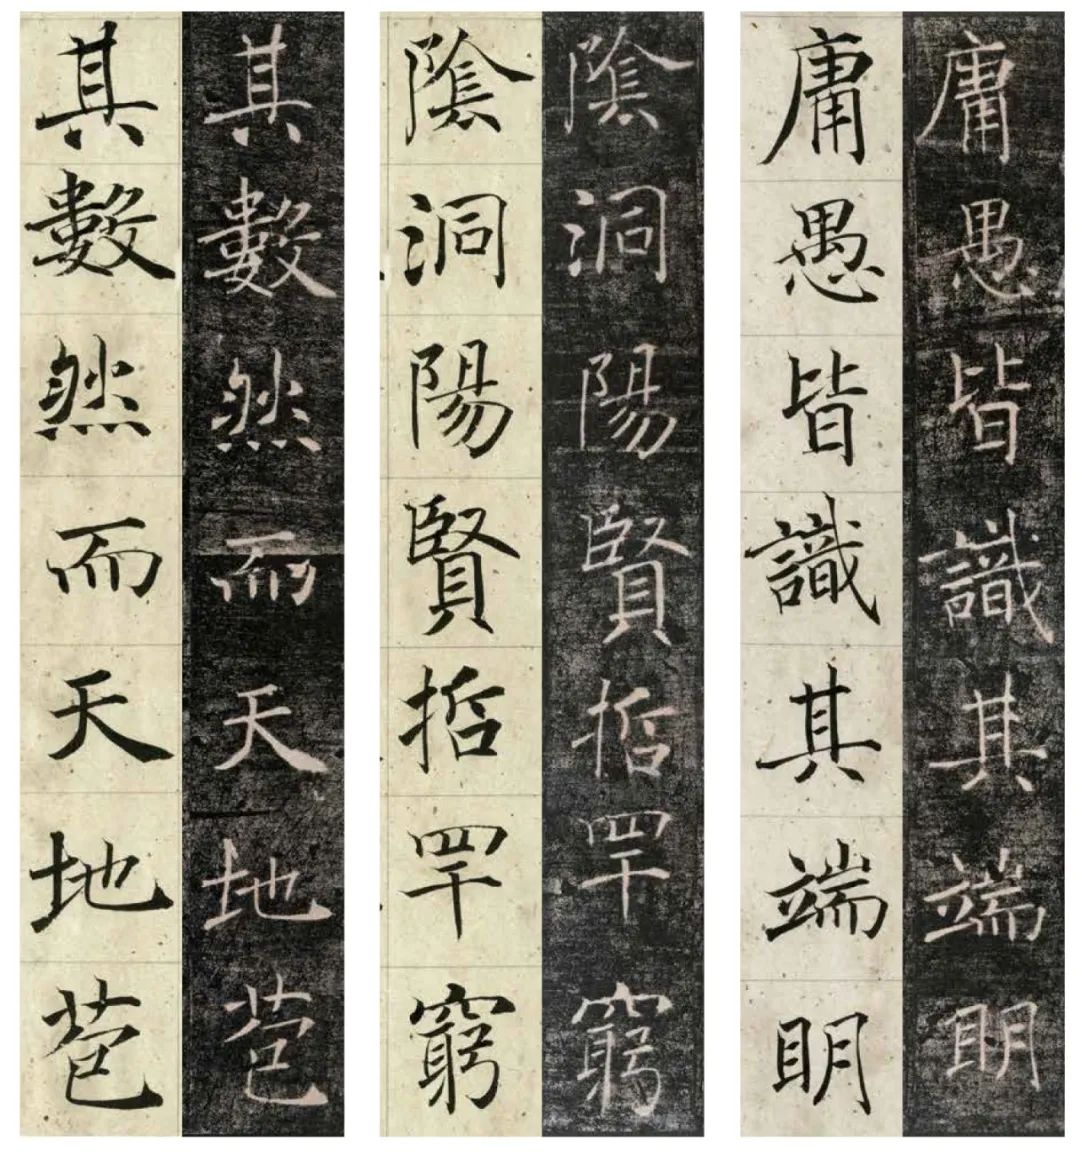 庸愚皆識其端眀
庸愚皆識其端眀
陰洞陽賢哲罕窮
陰洞陽賢哲罕窮
其數然而天地苞
其數然而天地苞